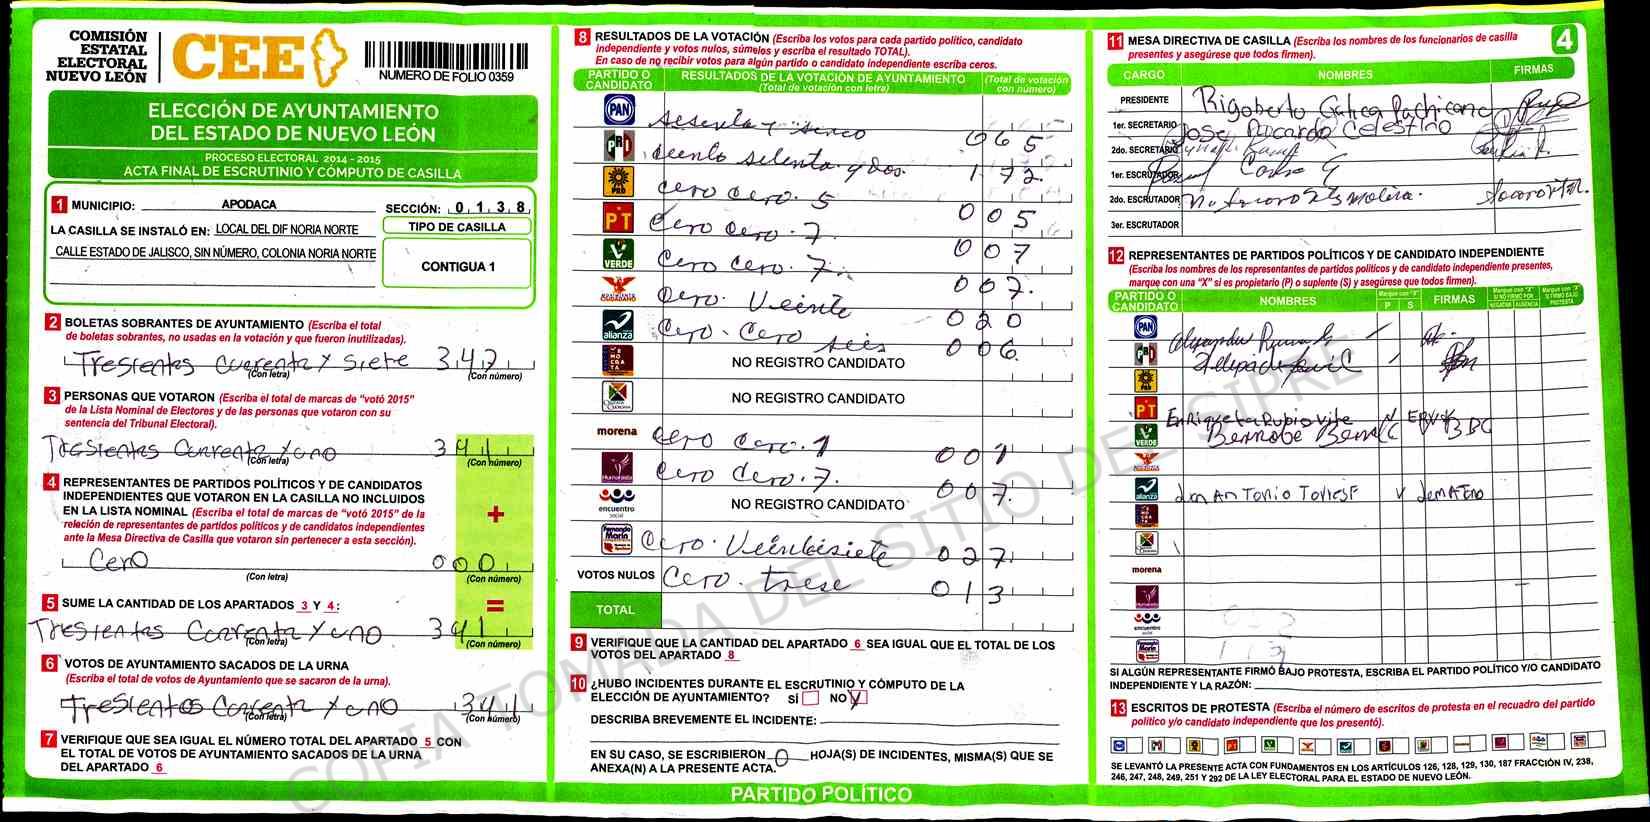 COMISIÓN
ESTATAL
ELECTORAL
NUEVO LEÓN
CEE
NUMERO DE FOLIO 0359
ELECCIÓN DE AYUNTAMIENTO
DEL ESTADO DE NUEVO LEÓN
PROCESO ELECTORAL 2014 - 2015
ACTA FINAL DE ESCRUTINIO Y CÓMPUTO DE CASILLA
1 MUNICIPIO: APODACA SECCIÓN: 0 1 3 8
LA CASILLA SE INSTALÓ EN: LOCAL DEL DIF NORIA NORTE
CALLE ESTADO DE JALISCO, SIN NÚMERO, COLONIA NORIA NORTE
TIPO DE CASILLA
CONTIGUA 1
2 BOLETAS SOBRANTES DE AYUNTAMIENTO (Escriba el total
de boletas sobrantes, no usadas en la votación y que fueron inutilizadas).
Tresientos Cuarenta Y Siete 347
(Con letra) (Con número)
3 PERSONAS QUE VOTARON (Escriba el total de marcas de "votó 2015"
de la Lista Nominal de Electores y de las personas que votaron con su
sentencia del Tribunal Electoral).
Tresientas Cuarenta Y uno 341
(Con letra) (Con número)
4 REPRESENTANTES DE PARTIDOS POLÍTICOS Y DE CANDIDATOS
INDEPENDIENTES QUE VOTARON EN LA CASILLA NO INCLUIDOS
EN LA LISTA NOMINAL (Escriba el total de marcas de "votó 2015" de la
relación de representantes de partidos políticos y de candidatos independientes
ante la Mesa Directiva de Casilla que votaron sin pertenecer a esta sección).
+
Cero 000
(Con letra) (Con número)
=
5 SUME LA CANTIDAD DE LOS APARTADOS 3 Y 4:
Tresientas Cuarenta Y uno 341
(Con letra) (Con número)
6 VOTOS DE AYUNTAMIENTO SACADOS DE LA URNA
(Escriba el total de votos de Ayuntamiento que se sacaron de la urna).
Tresientos Cuarenta Y uno 341
(Con letra) (Con número)
7 VERIFIQUE QUE SEA IGUAL EL NÚMERO TOTAL DEL APARTADO 5 CON
EL TOTAL DE VOTOS DE AYUNTAMIENTO SACADOS DE LA URNA
DEL APARTADO 6
8 RESULTADOS DE LA VOTACIÓN (Escriba los votos para cada partido político, candidato
independiente y votos nulos, súmelos y escriba el resultado TOTAL).
En caso de no recibir votos para algún partido o candidato independiente escriba ceros.
PARTIDO O CANDIDATO RESULTADOS DE LA VOTACIÓN DE AYUNTAMIENTO (Total de votación con letra) (Total de votación con número)
PAN sesenta y sinco 065
PRI siento setenta y dos. 172.
PRD cero cero. 5 005
PT Cero cero. 7 007
VERDE Cero cero. 7. 007.
MOVIMIENTO CIUDADANO Cero. Veinte 020
alianza Cero - Cero seis 006.
NO REGISTRO CANDIDATO
NO REGISTRO CANDIDATO
morena cero cero. 1 001
Humanista Cero Cero. 7. 007.
encuentro social NO REGISTRO CANDIDATO
Fernando Marín Cero. Veintisiete 027.
VOTOS NULOS Cero. trese 013
TOTAL
9 VERIFIQUE QUE LA CANTIDAD DEL APARTADO 6 SEA IGUAL QUE EL TOTAL DE LOS
VOTOS DEL APARTADO 8
10 ¿HUBO INCIDENTES DURANTE EL ESCRUTINIO Y CÓMPUTO DE LA
ELECCIÓN DE AYUNTAMIENTO? SÍ NO
DESCRIBA BREVEMENTE EL INCIDENTE:
EN SU CASO, SE ESCRIBIERON 0 HOJA(S) DE INCIDENTES, MISMA(S) QUE SE
ANEXA(N) A LA PRESENTE ACTA.
PARTIDO POLÍTICO
4
11 MESA DIRECTIVA DE CASILLA (Escriba los nombres de los funcionarios de casilla
presentes y asegúrese que todos firmen).
CARGO NOMBRES FIRMAS
PRESIDENTE Rigoberto
1er. SECRETARIO Jose Ricardo Celestino
2do. SECRETARIO
1er. ESCRUTADOR
2do. ESCRUTADOR Molina.
3er. ESCRUTADOR
12 REPRESENTANTES DE PARTIDOS POLÍTICOS Y DE CANDIDATO INDEPENDIENTE
(Escriba los nombres de los representantes de partidos políticos y de candidato independiente presentes,
marque con una "X" si es propietario (P) o suplente (S) y asegúrese que todos firmen).
PARTIDO O CANDIDATO NOMBRES Marque con "X" P S FIRMAS Marque con "X" SI NO FIRMÓ POR NEGATIVA AUSENCIA Marque con "X" SI FIRMÓ BAJO PROTESTA
PAN
PRI
PRD
PT Enriqueta Rubio
VERDE Bernabe
alianza Antonio Torres
morena
encuentro social
SI ALGÚN REPRESENTANTE FIRMÓ BAJO PROTESTA, ESCRIBA EL PARTIDO POLÍTICO Y/O CANDIDATO
INDEPENDIENTE Y LA RAZÓN:
13 ESCRITOS DE PROTESTA (Escriba el número de escritos de protesta en el recuadro del partido
político y/o candidato independiente que los presentó).
SE LEVANTÓ LA PRESENTE ACTA CON FUNDAMENTOS EN LOS ARTÍCULOS 126, 128, 129, 130, 187 FRACCIÓN IV, 238,
246, 247, 248, 249, 251 Y 292 DE LA LEY ELECTORAL PARA EL ESTADO DE NUEVO LEÓN.
COPIA TOMADA DEL SITIO DEL SIPRE